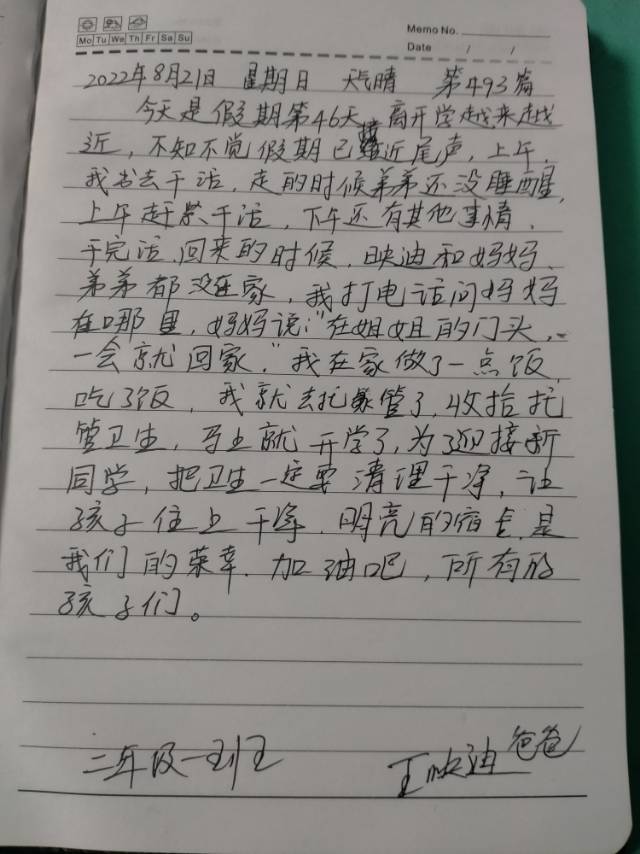 Memo No.
Mo Tu We Th Fr Sa Su
Date / /
2022年8月21日 星期日 天气晴 第493篇
今天是假期第46天,离开学越来越
近,不知不觉假期已接近尾声,上午,
我出去干活,走的时候弟弟还没睡醒,
上午赶紧干活,下午还有其他事情,
干完活,回来的时候,映迪和妈妈,
弟弟都没在家,我打电话问妈妈
在哪里,妈妈说:“在姐姐的门头,
一会就回家,”我在家做了一点饭,
吃了饭,我就去托管了,收拾托
管卫生,马上就开学了,为了迎接新
同学,把卫生一定要清理干净,让
孩子住上干净,明亮的宿舍,是
我们的荣幸.加油吧,所有的
孩子们。
二年级一班 王映迪爸爸